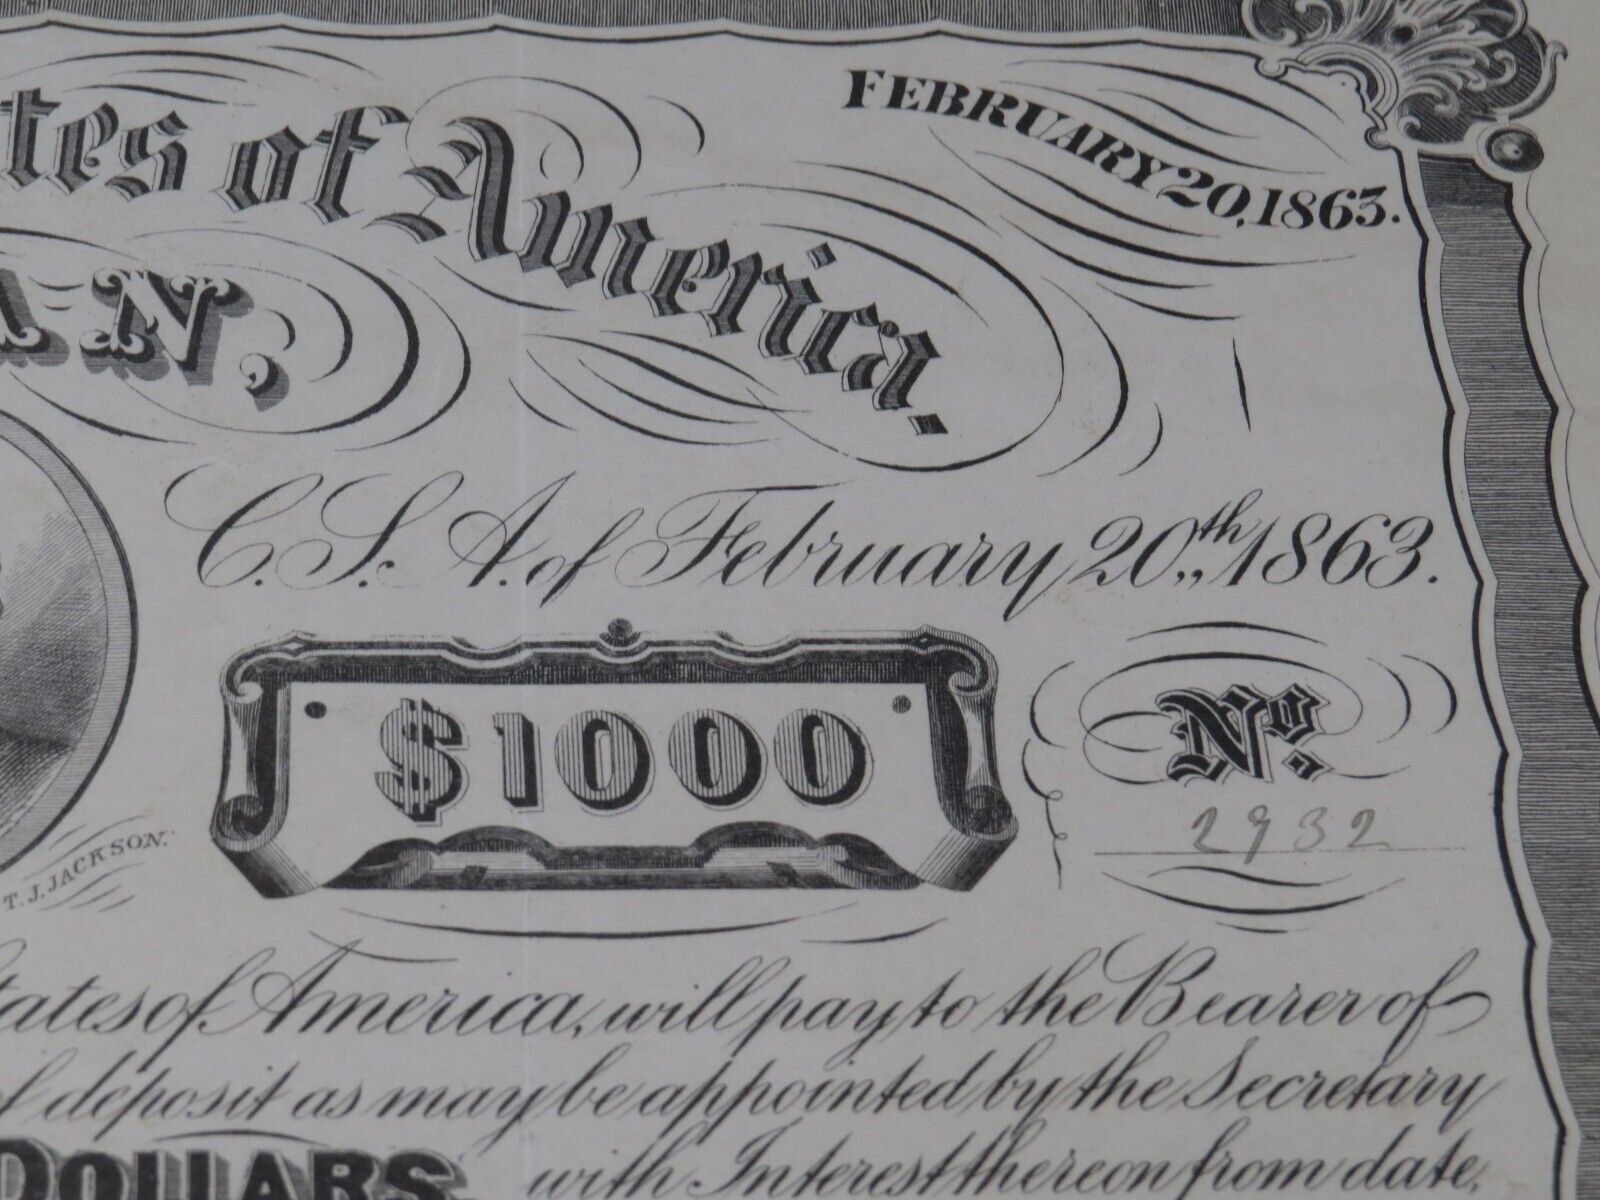 FEBRUARY 20, 1863.
tes of America.
AN,
C.S.A. of February 20th, 1863.
$1000
No.
2932
T. J. JACKSON.
States of America, will pay to the Bearer of
of deposit as may be appointed by the Secretary
DOLLARS. with Interest thereon from date,